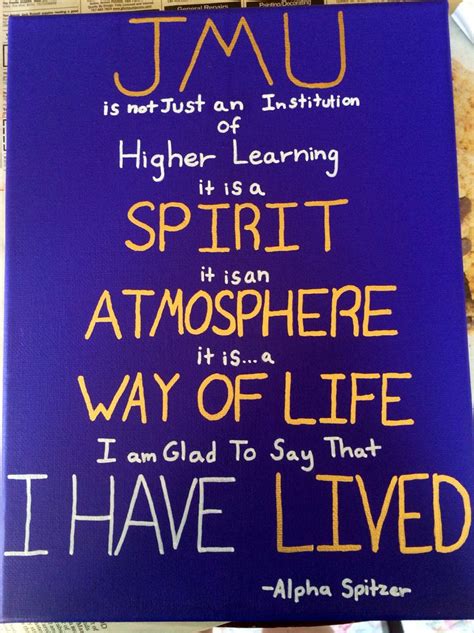 General Repairs
Painting/Decorating
JMU
is not Just an Institution
of
Higher Learning
it is a
SPIRIT
it is an
ATMOSPHERE
it is...a
WAY OF LIFE
I am Glad To Say That
I HAVE LIVED
-Alpha Spitzer